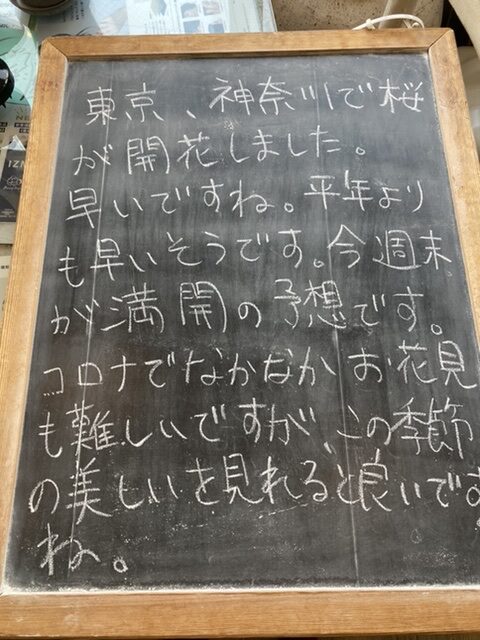 東京、神奈川で桜
が開花しました。
早いですね。平年より
も早いそうです。今週末
が満開の予想です。
コロナでなかなかお花見
も難しいですが、この季節
の美しいを見れると良いです
ね。